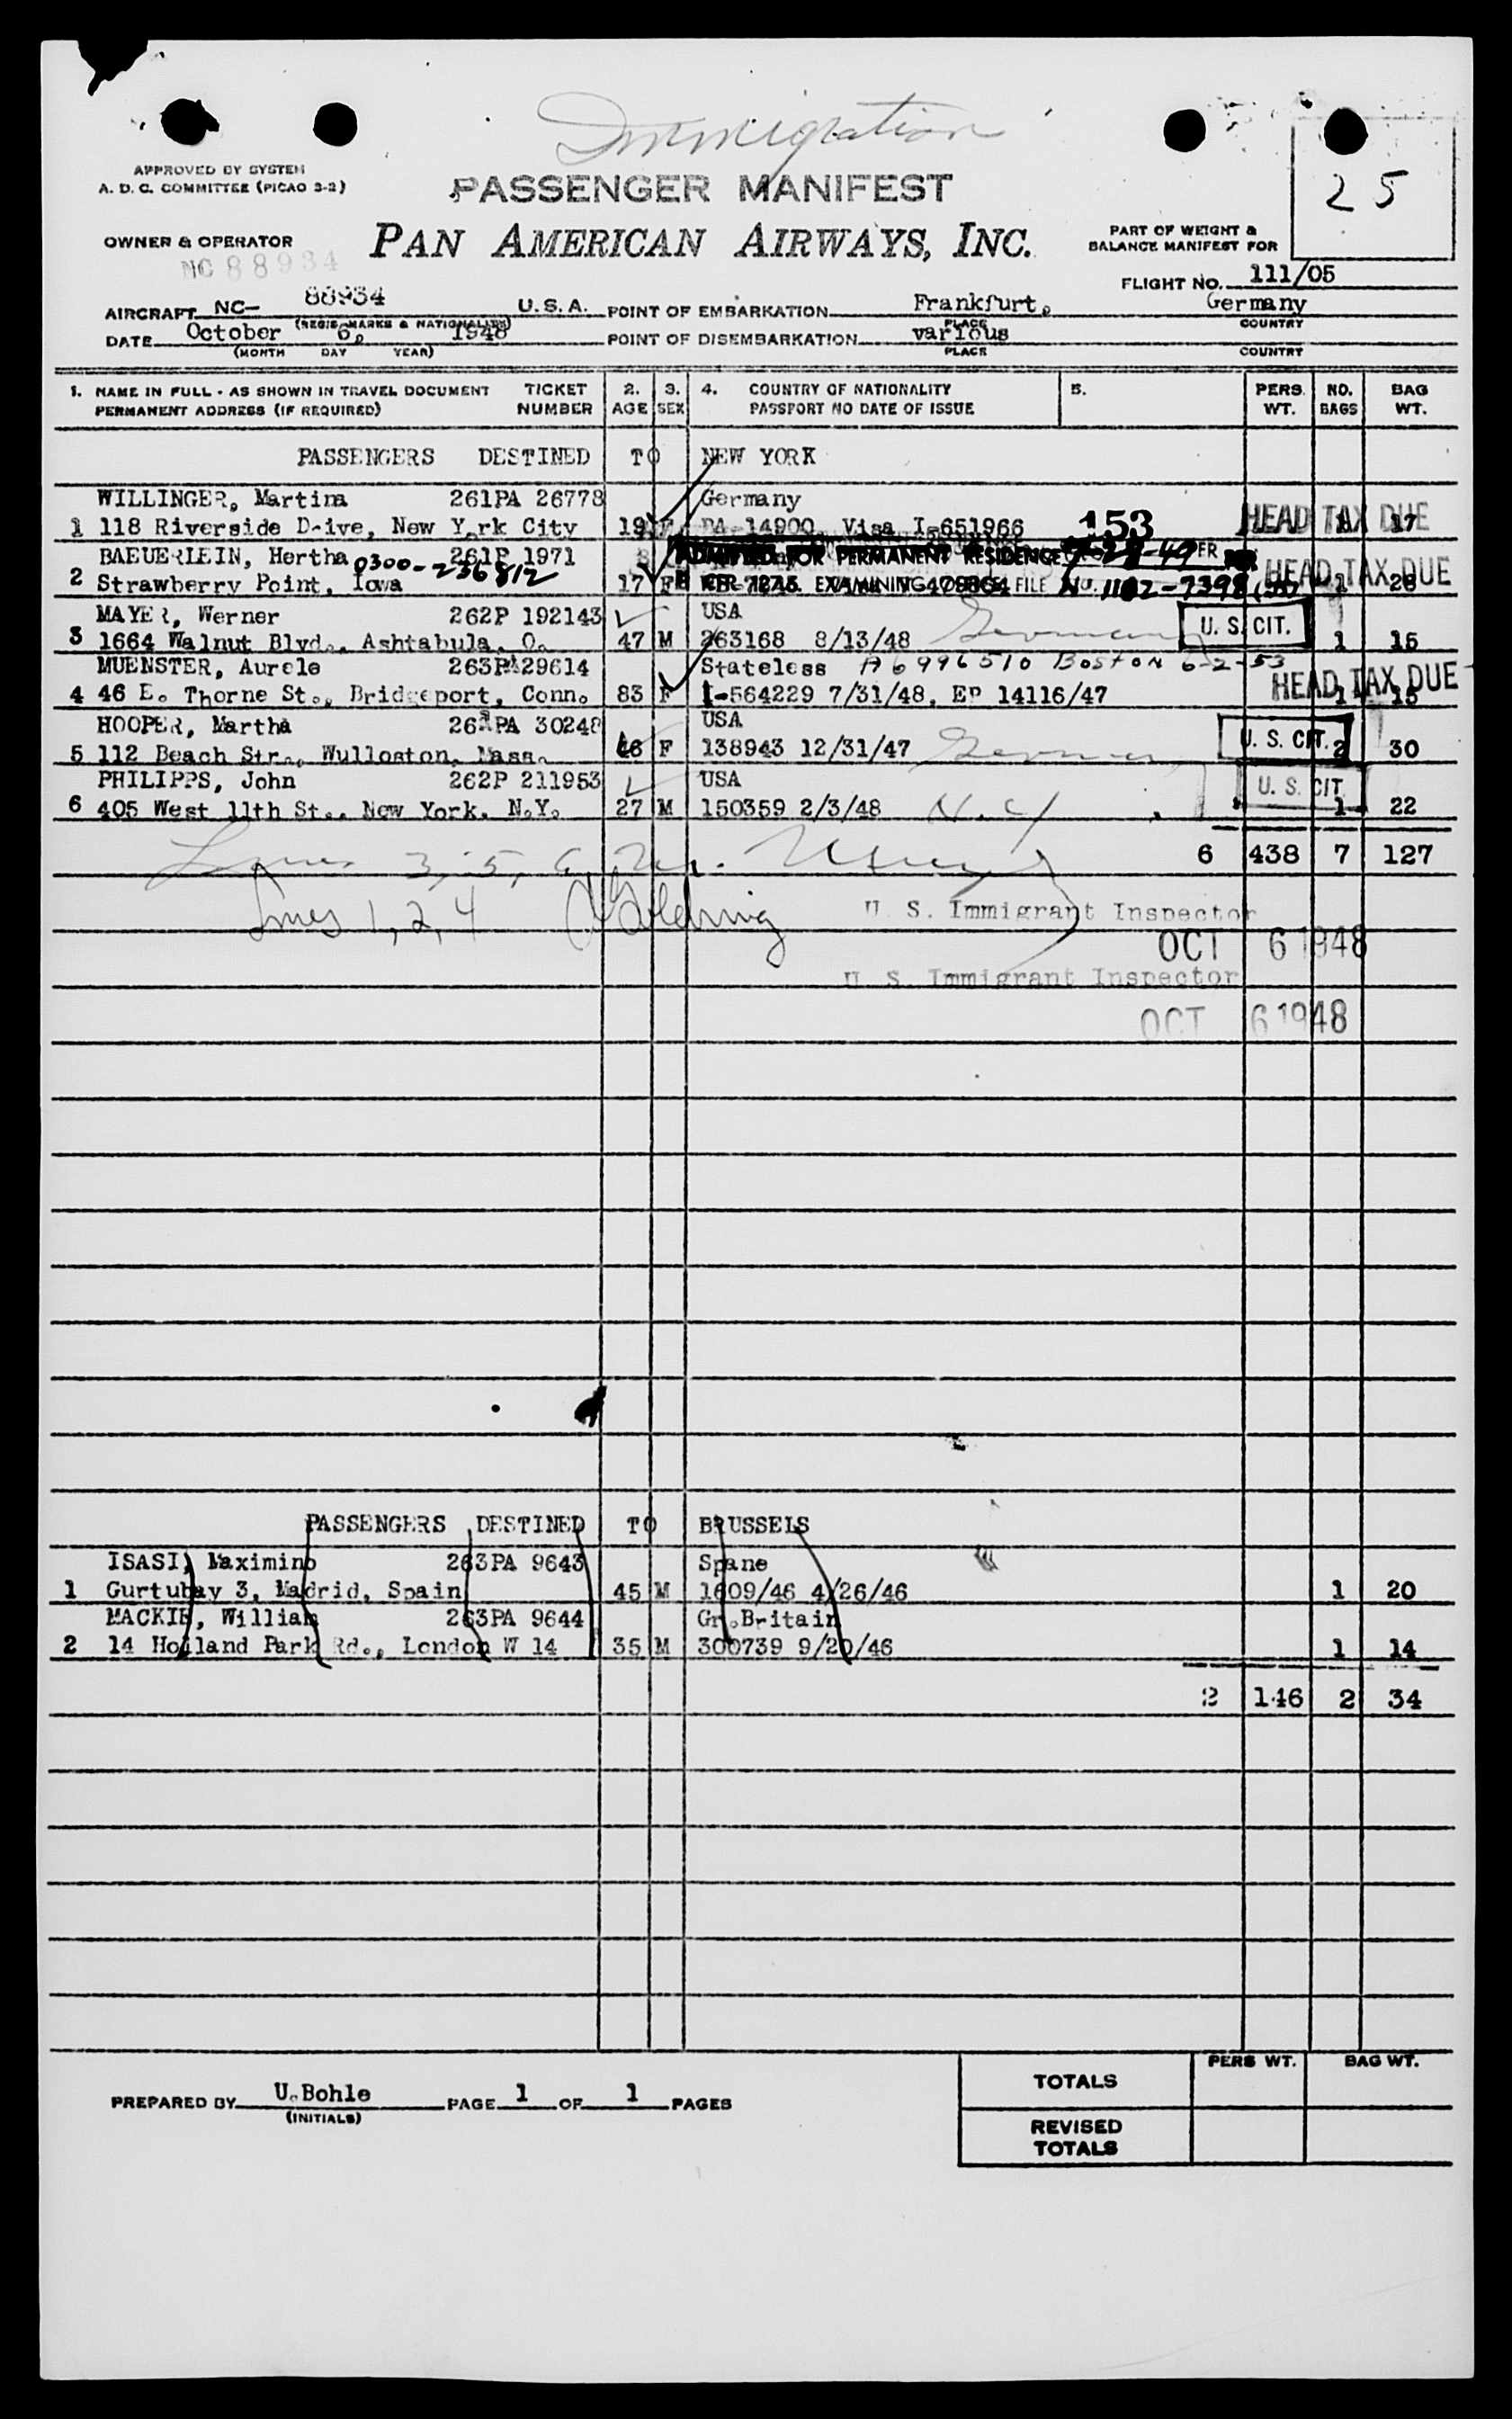 Immigration
25
APPROVED BY SYSTEM
A. D. C. COMMITTEE (PICAO 3-2)
PASSENGER MANIFEST
OWNER & OPERATOR
NC 88934
PAN AMERICAN AIRWAYS, INC.
PART OF WEIGHT &
BALANCE MANIFEST FOR
FLIGHT NO. 111/05
AIRCRAFT NC- 88934 U.S.A. POINT OF EMBARKATION Frankfurt, Germany
(REGIS. MARKS & NATIONALITY) PLACE COUNTRY
DATE October 6, 1948 POINT OF DISEMBARKATION various
(MONTH DAY YEAR) PLACE COUNTRY
1. NAME IN FULL - AS SHOWN IN TRAVEL DOCUMENT TICKET 2. 3. 4. COUNTRY OF NATIONALITY 5. PERS. NO. BAG
PERMANENT ADDRESS (IF REQUIRED) NUMBER AGE SEX PASSPORT NO DATE OF ISSUE WT. BAGS WT.
PASSENGERS DESTINED TO NEW YORK
WILLINGER, Martina 261PA 26778 Germany
1 118 Riverside Drive, New York City 19 F PA 14900 Visa I-651966 153 HEAD TAX DUE 1 17
BAEUERLEIN, Hertha 261P 1971 ADMITTED FOR PERMANENT RESIDENCE
0300-236812
2 Strawberry Point, Iowa 17 F EXAMINING FILE NO. HEAD TAX DUE 1 28
MAYER, Werner 262P 192143 USA
3 1664 Walnut Blvd., Ashtabula, O. 47 M 263168 8/13/48 German U. S. CIT. 1 15
MUENSTER, Aurele 263PA29614 Stateless A6996510 BOSTON 6-2-53
4 46 E. Thorne St., Bridgeport, Conn. 83 F I-564229 7/31/48, EP 14116/47 HEAD TAX DUE 1 15
HOOPER, Martha PA 30248 USA
5 112 Beach Str., Wulloston, Mass. 46 F 138943 12/31/47 U. S. CIT. 2 30
PHILIPPS, John 262P 211953 USA
6 405 West 11th St., New York, N.Y. 27 M 150359 2/3/48 N.Y U. S. CIT. 1 22
6 438 7 127
Lines 3, 5, 6
Lines 1, 2, 4
U. S. Immigrant Inspector
OCT 6 1948
U. S. Immigrant Inspector
OCT 6 1948
PASSENGERS DESTINED TO BRUSSELS
ISASI, Maximino 263PA 9643 Spane
1 Gurtubay 3, Madrid, Spain 45 M 1609/46 4/26/46 1 20
MACKIE, William 263PA 9644 Gr.Britain
2 14 Holland Park Rd., London W 14 35 M 300739 9/20/46 1 14
2 146 2 34
PERS WT. BAG WT.
TOTALS
PREPARED BY U.Bohle PAGE 1 OF 1 PAGES
(INITIALS)
REVISED
TOTALS